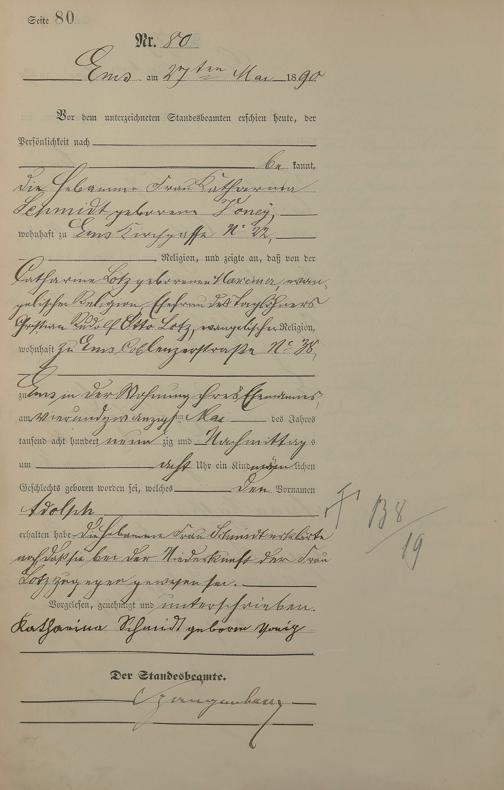 Seite 80
Nr. 80
Ems am 27ten Mai 1890
Vor dem unterzeichneten Standesbeamten erschien heute, der
Persönlichkeit nach
be kannt,
die Hebamme Frau Katharina
Schmidt geborene
wohnhaft zu Ems Kirchgasse No 22,
Religion, und zeigte an, daß von der
Catharine Lotz geborenen evan-
gelischer Religion, Ehefrau des Taglöhners
Christian Rudolf Otto Lotz, evangelischer Religion,
wohnhaft zu Ems Coblenzerstraße No 38,
zu Ems in der Wohnung ihres Ehemannes,
am vierundzwanzigsten Mai des Jahres
tausend acht hundert neun zig und Nachmittags
um acht Uhr ein Kind männ lichen
Geschlechts geboren worden sei, welches den Vornamen
Adolph
erhalten habe. Die Hebamme Frau Schmidt erklärte
noch daß sie bei der Niederkunft der Frau
Lotz zugegen gewesen sei.
Vorgelesen, genehmigt und unterschrieben.
Katharina Schmidt geboren
Der Standesbeamte.
B 8
19